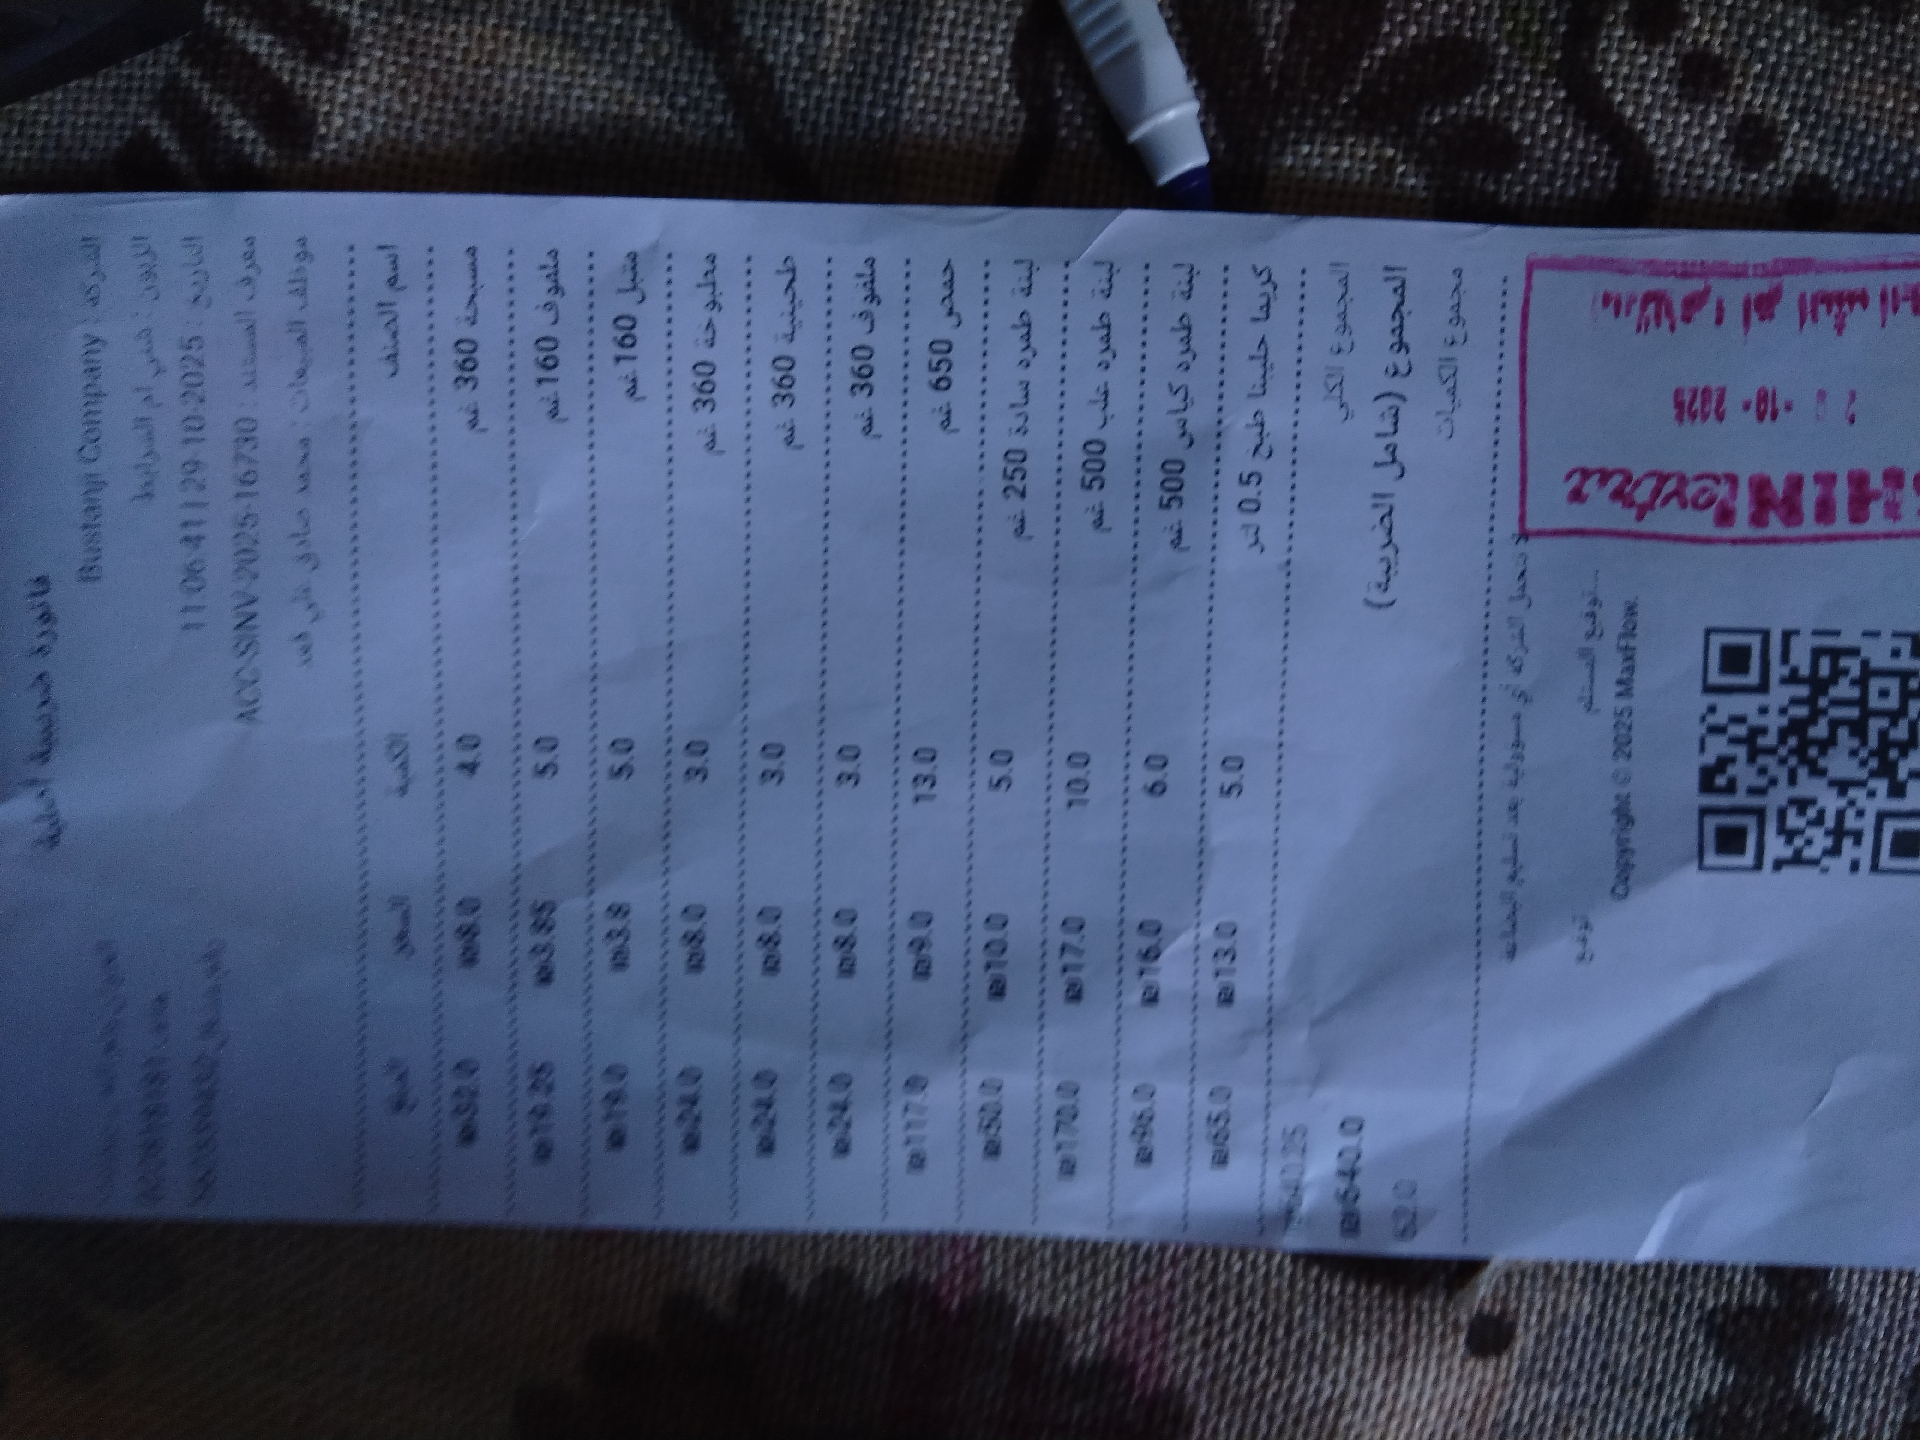 فاتورة ضريبية أصلية
الشركة : Bustanji Company
الزبون : شني ام الشرايط
التاريخ : 29-10-2025 | 11:06:41
معرف المستند : ACC-SINV-2025-16730
موظف المبيعات : محمد صادق علي فهد
اسم الصنف الكمية السعر المبلغ
مسبحة 360 غم 4.0 ₪8.0 ₪32.0
ملفوف 160 غم 5.0 ₪3.85 ₪19.25
متبل 160 غم 5.0 ₪3.8 ₪19.0
مطبوخة 360 غم 3.0 ₪8.0 ₪24.0
طحينية 360 غم 3.0 ₪8.0 ₪24.0
ملفوف 360 غم 3.0 ₪8.0 ₪24.0
حمص 650 غم 13.0 ₪9.0 ₪117.0
لبنة طمره سادة 250 غم 5.0 ₪10.0 ₪50.0
لبنة طمره علب 500 غم 10.0 ₪17.0 ₪170.0
لبنة طمره كياس 500 غم 6.0 ₪16.0 ₪96.0
كريما حليبنا طبخ 0.5 لتر 5.0 ₪13.0 ₪65.0
المجموع الكلي ₪640.25
المجموع (شامل الضريبة) ₪640.0
مجموع الكميات 62.0
لا تتحمل الشركة أي مسؤولية بعد تسليم البضاعة
توقيع المستلم... توقيع
Copyright © 2025 MaxFlow.
-10- 2025
extra